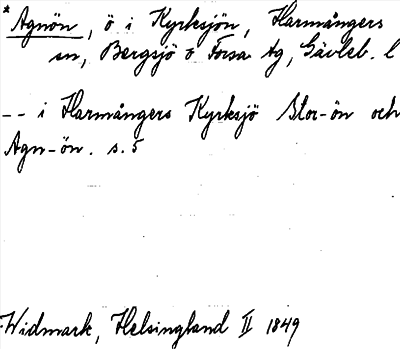 * Agnön, ö i Kyrksjön, Harmångers
sn, Bergsjö o Forsa tg, Gävleb. l
-- i Harmångers Kyrksjö Stor-ön och
Agn-ön. s. 5
Widmark, Helsingland II 1849